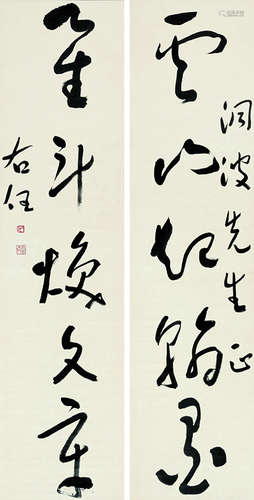 云山起翰墨
波先生正
星斗焕文章
右任